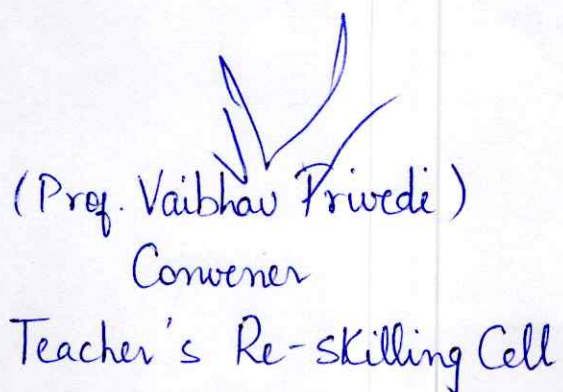 (Prof. Vaibhav Trivedi)
Convener
Teacher's Re-Skilling Cell